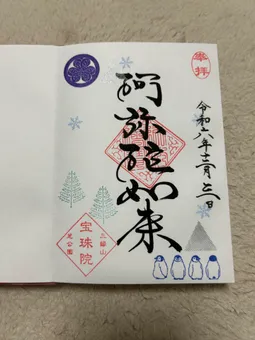 奉拝
令和六年十二月 日
阿弥陀如来
三縁山
宝珠院
芝公園